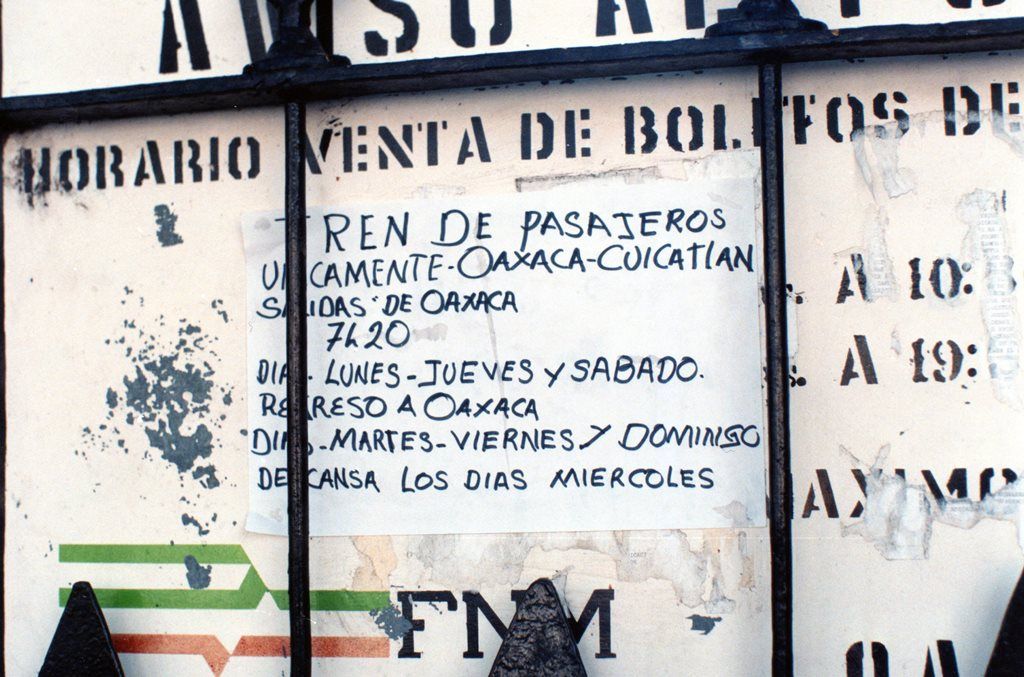 AVISO AL PU
HORARIO VENTA DE BOLETOS DE
TREN DE PASAJEROS
UNICAMENTE-OAXACA-CUICATLAN
SALIDAS DE OAXACA
7h20
DIAS- LUNES-JUEVES Y SABADO.
REGRESO A OAXACA
DIAS-MARTES-VIERNES Y DOMINGO
DESCANSA LOS DIAS MIERCOLES
A 10:
A 19:
AXIMO
FNM